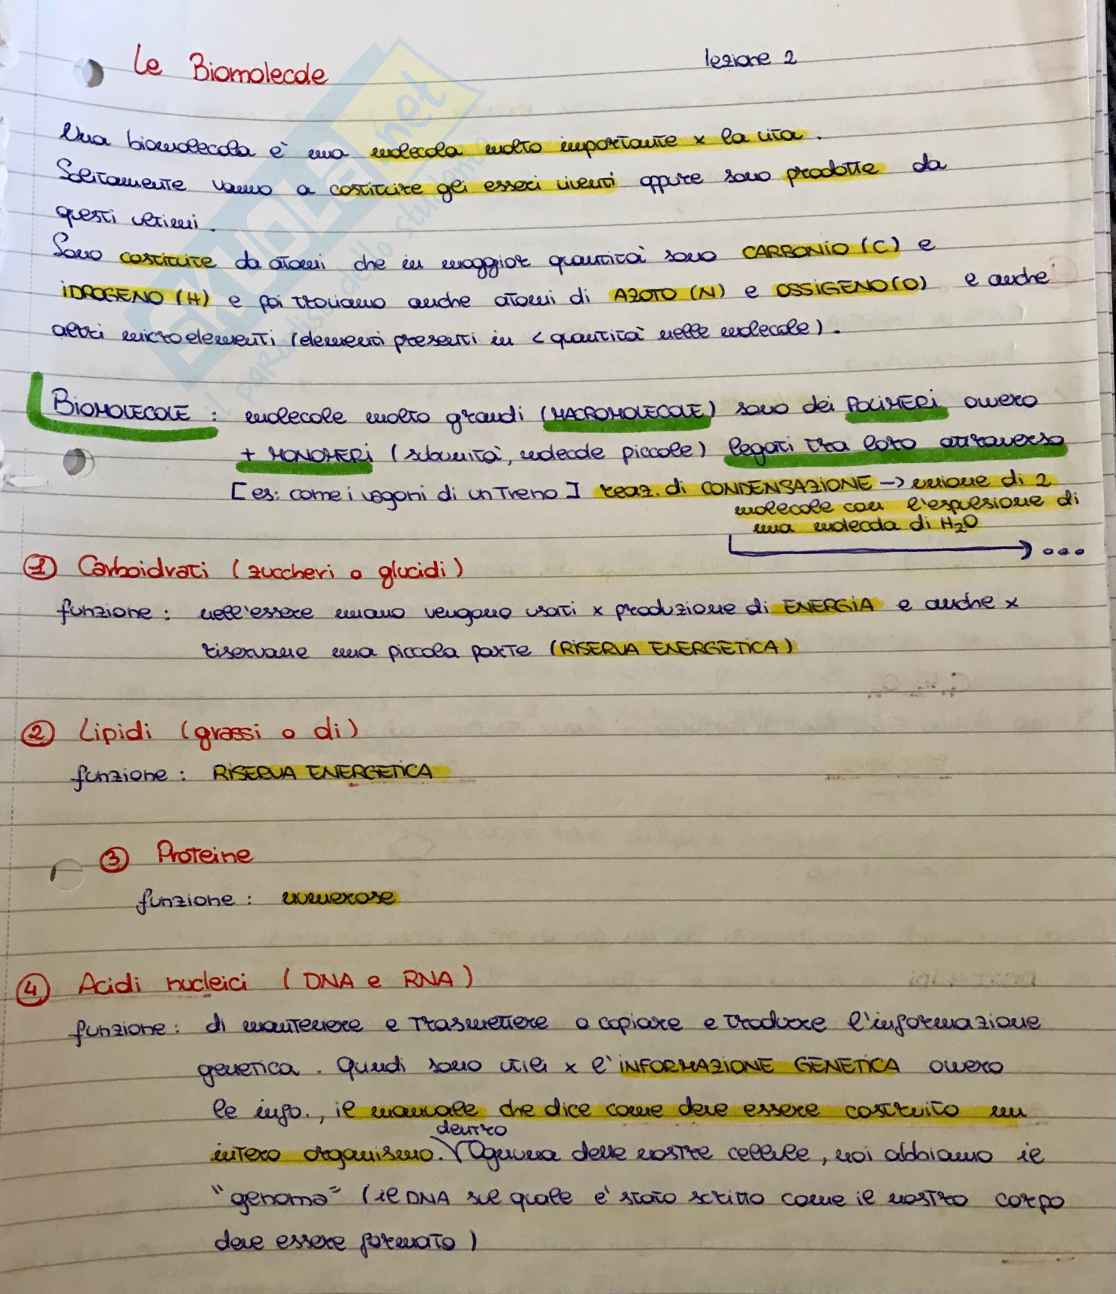 Le Biomolecole
lezione 2
Una biomolecola è una molecola molto importante x la vita.
Solitamente vanno a costituire gli esseri viventi oppure sono prodotte da
questi ultimi.
Sono costituite da atomi che in maggior quantità sono CARBONIO (C) e
IDROGENO (H) e poi troviamo anche atomi di AZOTO (N) e OSSIGENO (O) e anche
altri microelementi (elementi presenti in < quantità nelle molecole).
BIOMOLECOLE : molecole molto grandi (MACROMOLECOLE) sono dei POLIMERI ovvero
+ MONOMERI (subunità, molecole piccole) legati tra loro attraverso
[es: come i vagoni di un treno] reaz. di CONDENSAZIONE → unione di 2
molecole con l'espulsione di
una molecola di H₂O
→ ...
① Carboidrati (zuccheri o glucidi)
funzione : nell'essere umano vengono usati x produzione di ENERGIA e anche x
riservarne una piccola parte (RISERVA ENERGETICA)
② Lipidi (grassi o oli)
funzione : RISERVA ENERGETICA
③ Proteine
funzione : numerose
④ Acidi nucleici (DNA e RNA)
funzione : di mantenere e trasmettere o copiare e tradurre l'informazione
genetica. Quindi sono utili x l'INFORMAZIONE GENETICA ovvero
le info., il manuale che dice come deve essere costruito un
dentro
intero organismo. Ognuna delle nostre cellule, noi abbiamo il
"genoma" (il DNA sul quale è stato scritto come il nostro corpo
deve essere formato)
SKUOLA.net
il paradiso dello studente